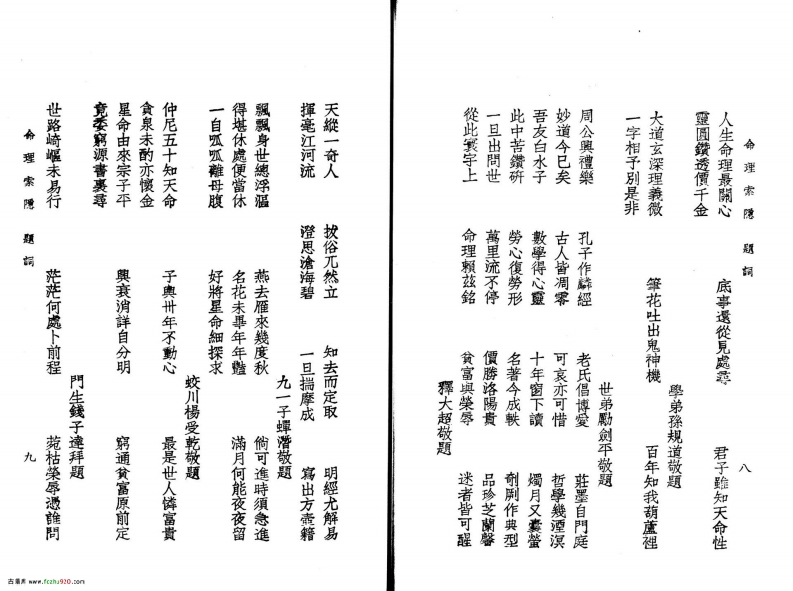 命理索隱 題詞 八
人生命理最關心 底事還從見處尋 君子雖知天命性
靈圓鑽透價千金
學弟孫規道敬題
大道玄深理義微 筆花吐出鬼神機 百年知我葫蘆裡
一字相予別是非
世弟勵劍平敬題
周公興禮樂 孔子作麟經 老氏倡博愛 莊墨自門庭
妙道今已矣 古人皆凋零 可哀亦可惜 哲學幾湮溟
吾友白水子 數學得心靈 十年窗下讀 燭月又囊螢
此中苦鑽研 勞心復勞形 名著今成帙 剞劂作典型
一旦出問世 萬里流不停 價勝洛陽貴 品珍芝蘭馨
從此寰宇上 命理賴茲銘 貧富與榮辱 迷者皆可醒
釋大超敬題
天縱一奇人 拔俗兀然立 知去而定取 明經尤解易
揮毫江河流 澄思滄海碧 一旦揣摩成 寫出方壺籍
九一子蟬潛敬題
飄飄身世總浮漚 燕去雁來幾度秋 倘可進時須急進
得堪休處便當休 名花未畢年年艷 滿月何能夜夜留
一自呱呱離母腹 好將星命細探求
蛟川楊受乾敬題
仲尼五十知天命 子輿卅年不動心 最是世人憐富貴
貪泉未酌亦懷金
星命由來宗子平 興衰消詳自分明 窮通貧富原前定
竟委窮源書裏尋
門生錢子達拜題
世路崎嶇未易行 茫茫何處卜前程 菀枯榮辱憑誰問
命理索隱 題詞 九
古籍库 www.fczhu920.com